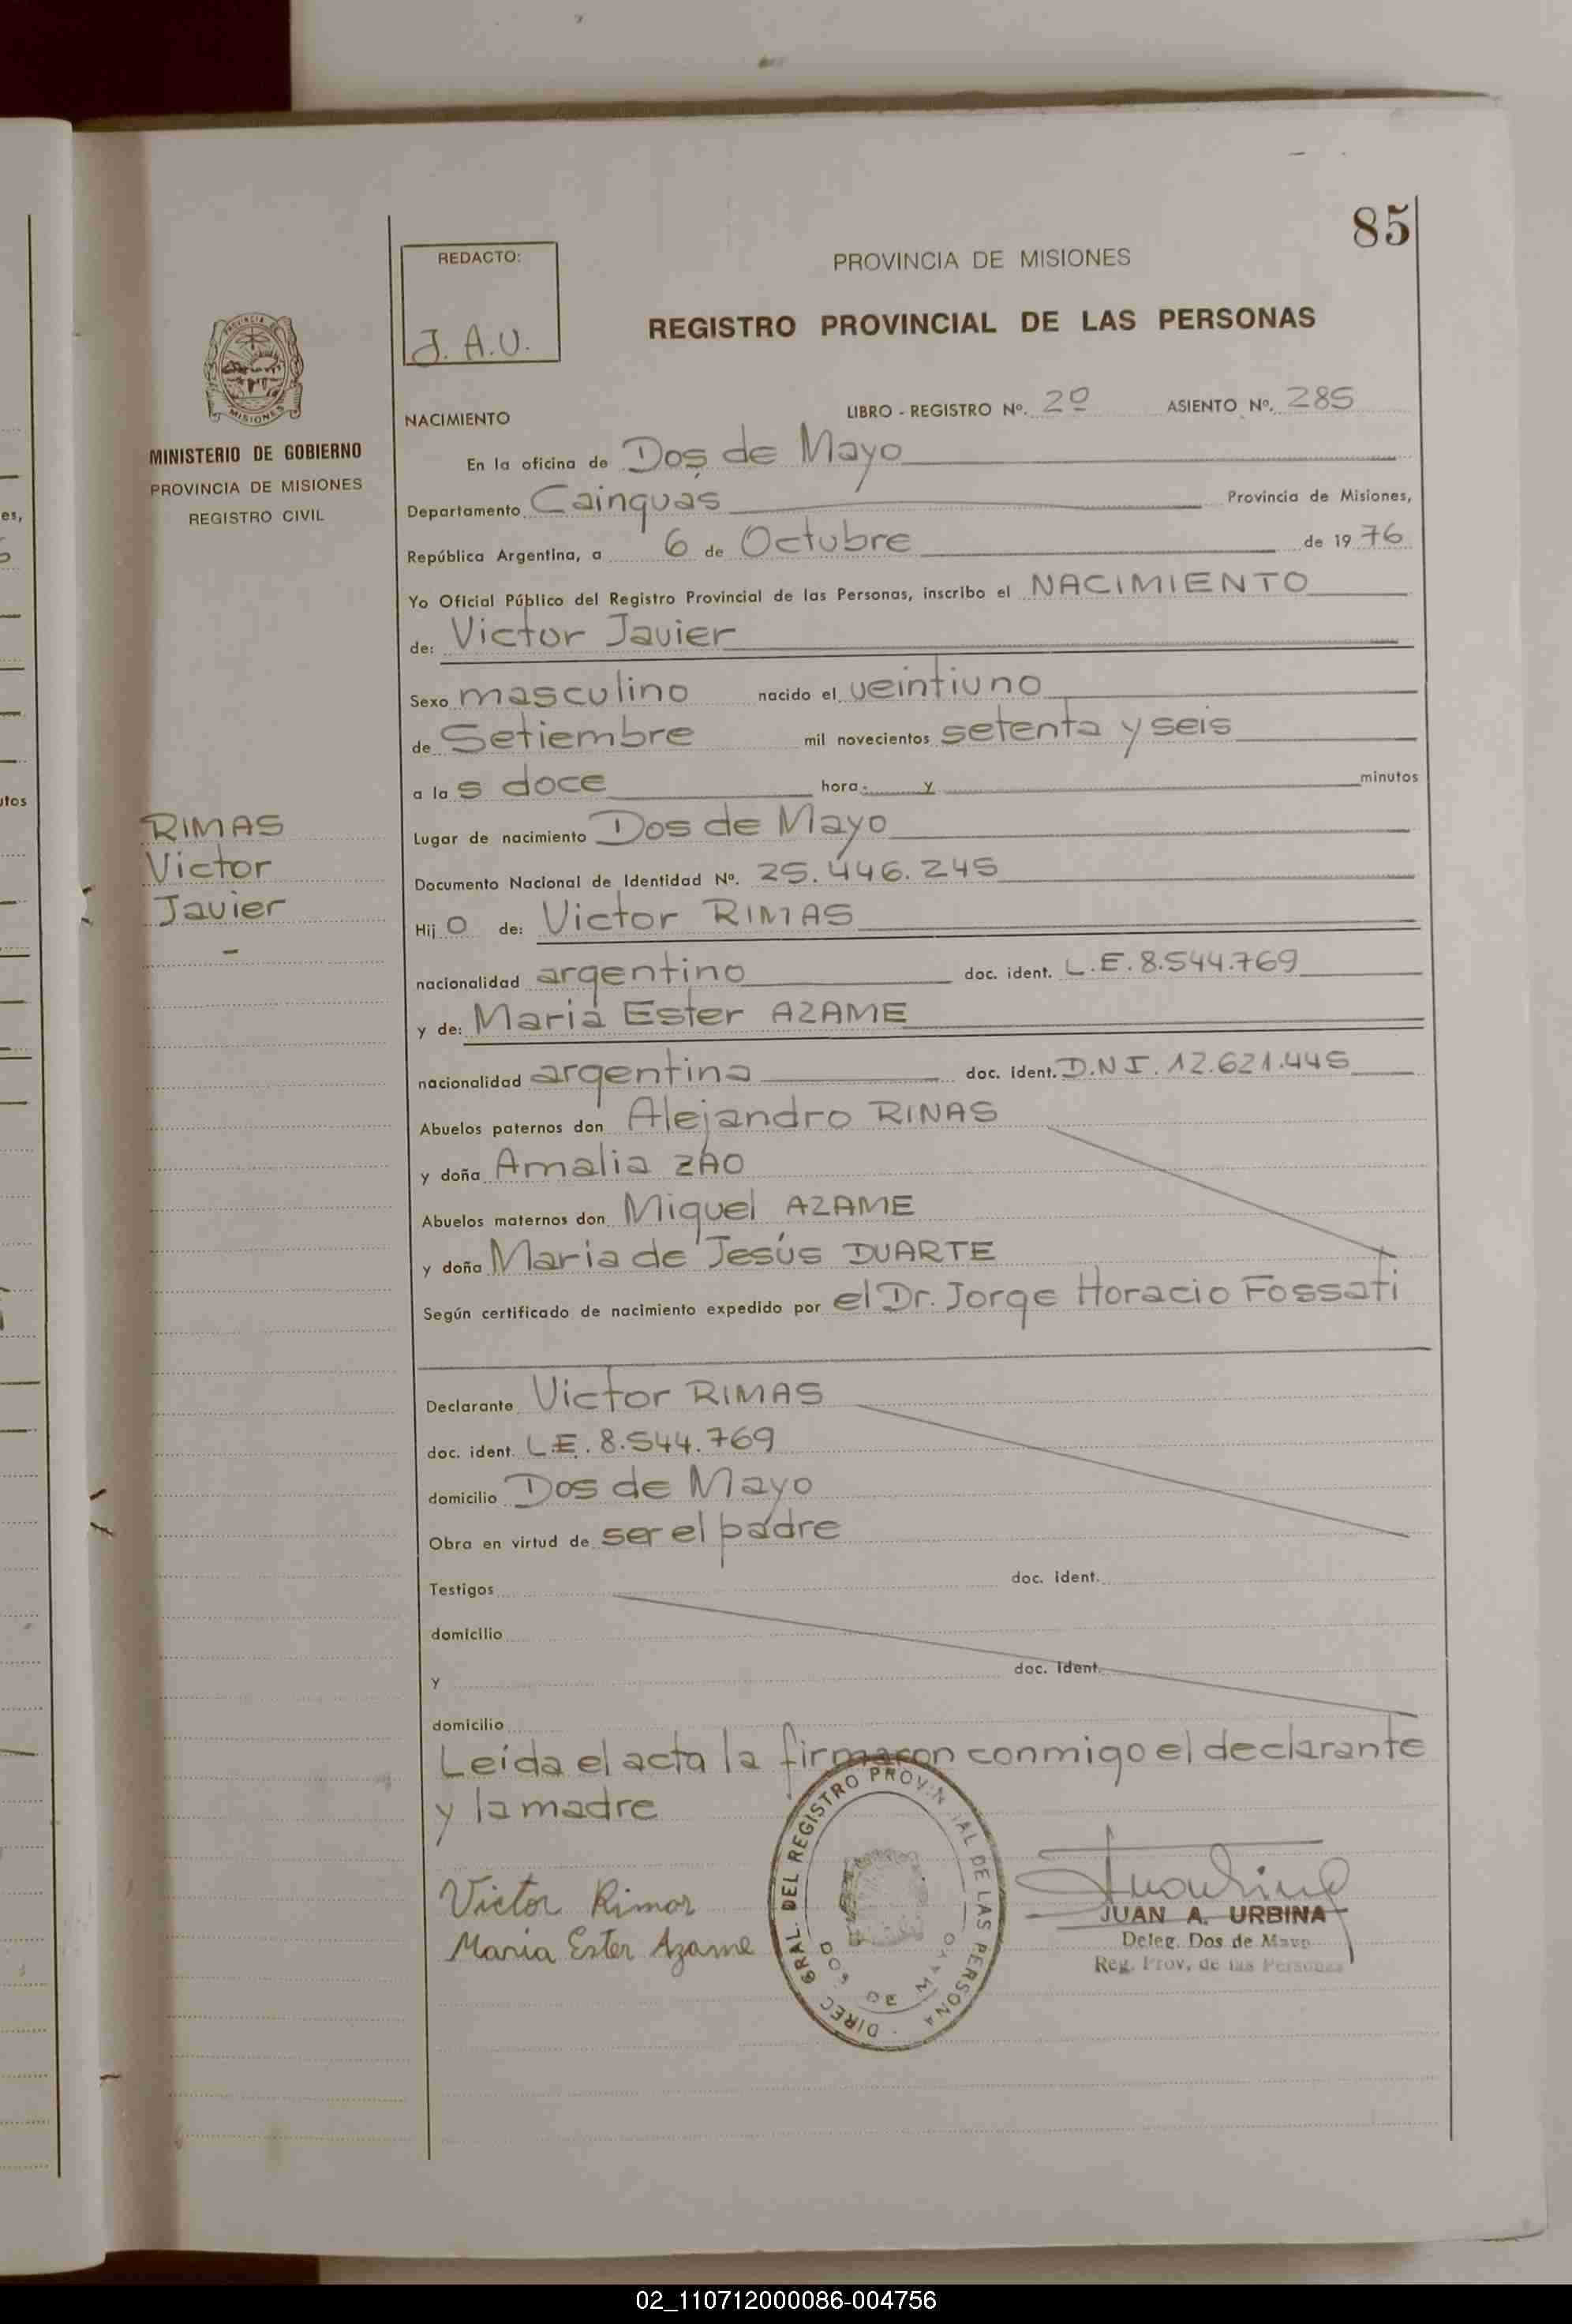 85
REDACTO:
J. A. U.
PROVINCIA DE MISIONES
REGISTRO PROVINCIAL DE LAS PERSONAS
MINISTERIO DE GOBIERNO
PROVINCIA DE MISIONES
REGISTRO CIVIL
NACIMIENTO LIBRO - REGISTRO Nº. 2º ASIENTO Nº. 285
En la oficina de Dos de Mayo
Departamento Cainguas Provincia de Misiones,
República Argentina, a 6 de Octubre de 1976
Yo Oficial Público del Registro Provincial de las Personas, inscribo el NACIMIENTO
de: Victor Javier
Sexo masculino nacido el veintiuno
de Setiembre mil novecientos setenta y seis
a la s doce hora y minutos
RIMAS
Victor
Javier
Lugar de nacimiento Dos de Mayo
Documento Nacional de Identidad Nº. 25.446.245
Hij o de: Victor RIMAS
nacionalidad argentino doc. ident. L.E. 8.544.769
y de: Maria Ester AZAME
nacionalidad argentina doc. ident. D.N.I. 12.621.445
Abuelos paternos don Alejandro RINAS
y doña Amalia ZAO
Abuelos maternos don Miguel AZAME
y doña Maria de Jesús DUARTE
Según certificado de nacimiento expedido por el Dr. Jorge Horacio Fossati
Declarante Victor RIMAS
doc. ident. L.E. 8.544.769
domicilio Dos de Mayo
Obra en virtud de ser el padre
Testigos doc. ident.
domicilio
y doc. ident.
domicilio
Leída el acta la firmaron conmigo el declarante
y la madre
Victor Rimas
Maria Ester Azame
DIREC. GRAL. DEL REGISTRO PROVINCIAL DE LAS PERSONA
DOS DE MAYO
JUAN A. URBINA
Deleg. Dos de Mayo
Reg. Prov. de las Personas
02_110712000086-004756